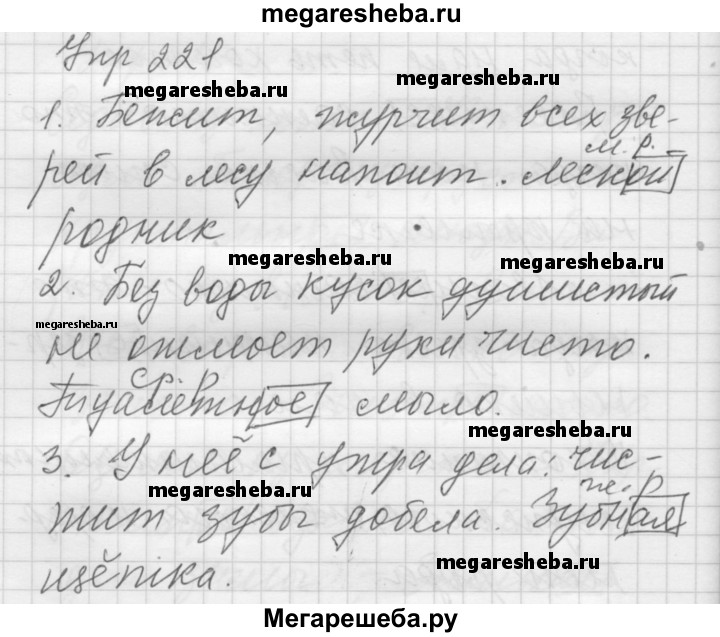 megaresheba.ru
Упр 221
megaresheba.ru megaresheba.ru
1. Бежит, журчит всех зве-
м. р.
рей в лесу напоит. леской
родник.
megaresheba.ru megaresheba.ru
2. Без воды кусок душистый
megaresheba.ru
не отмоет руки чисто.
ср. р.
Туалетное мыло.
megaresheba.ru
3. У неё с утра дела: чис-
megaresheba.ru ж. р.
тит зубы добела. Зубная
megaresheba.ru
щётка.
Мегарешеба.ру